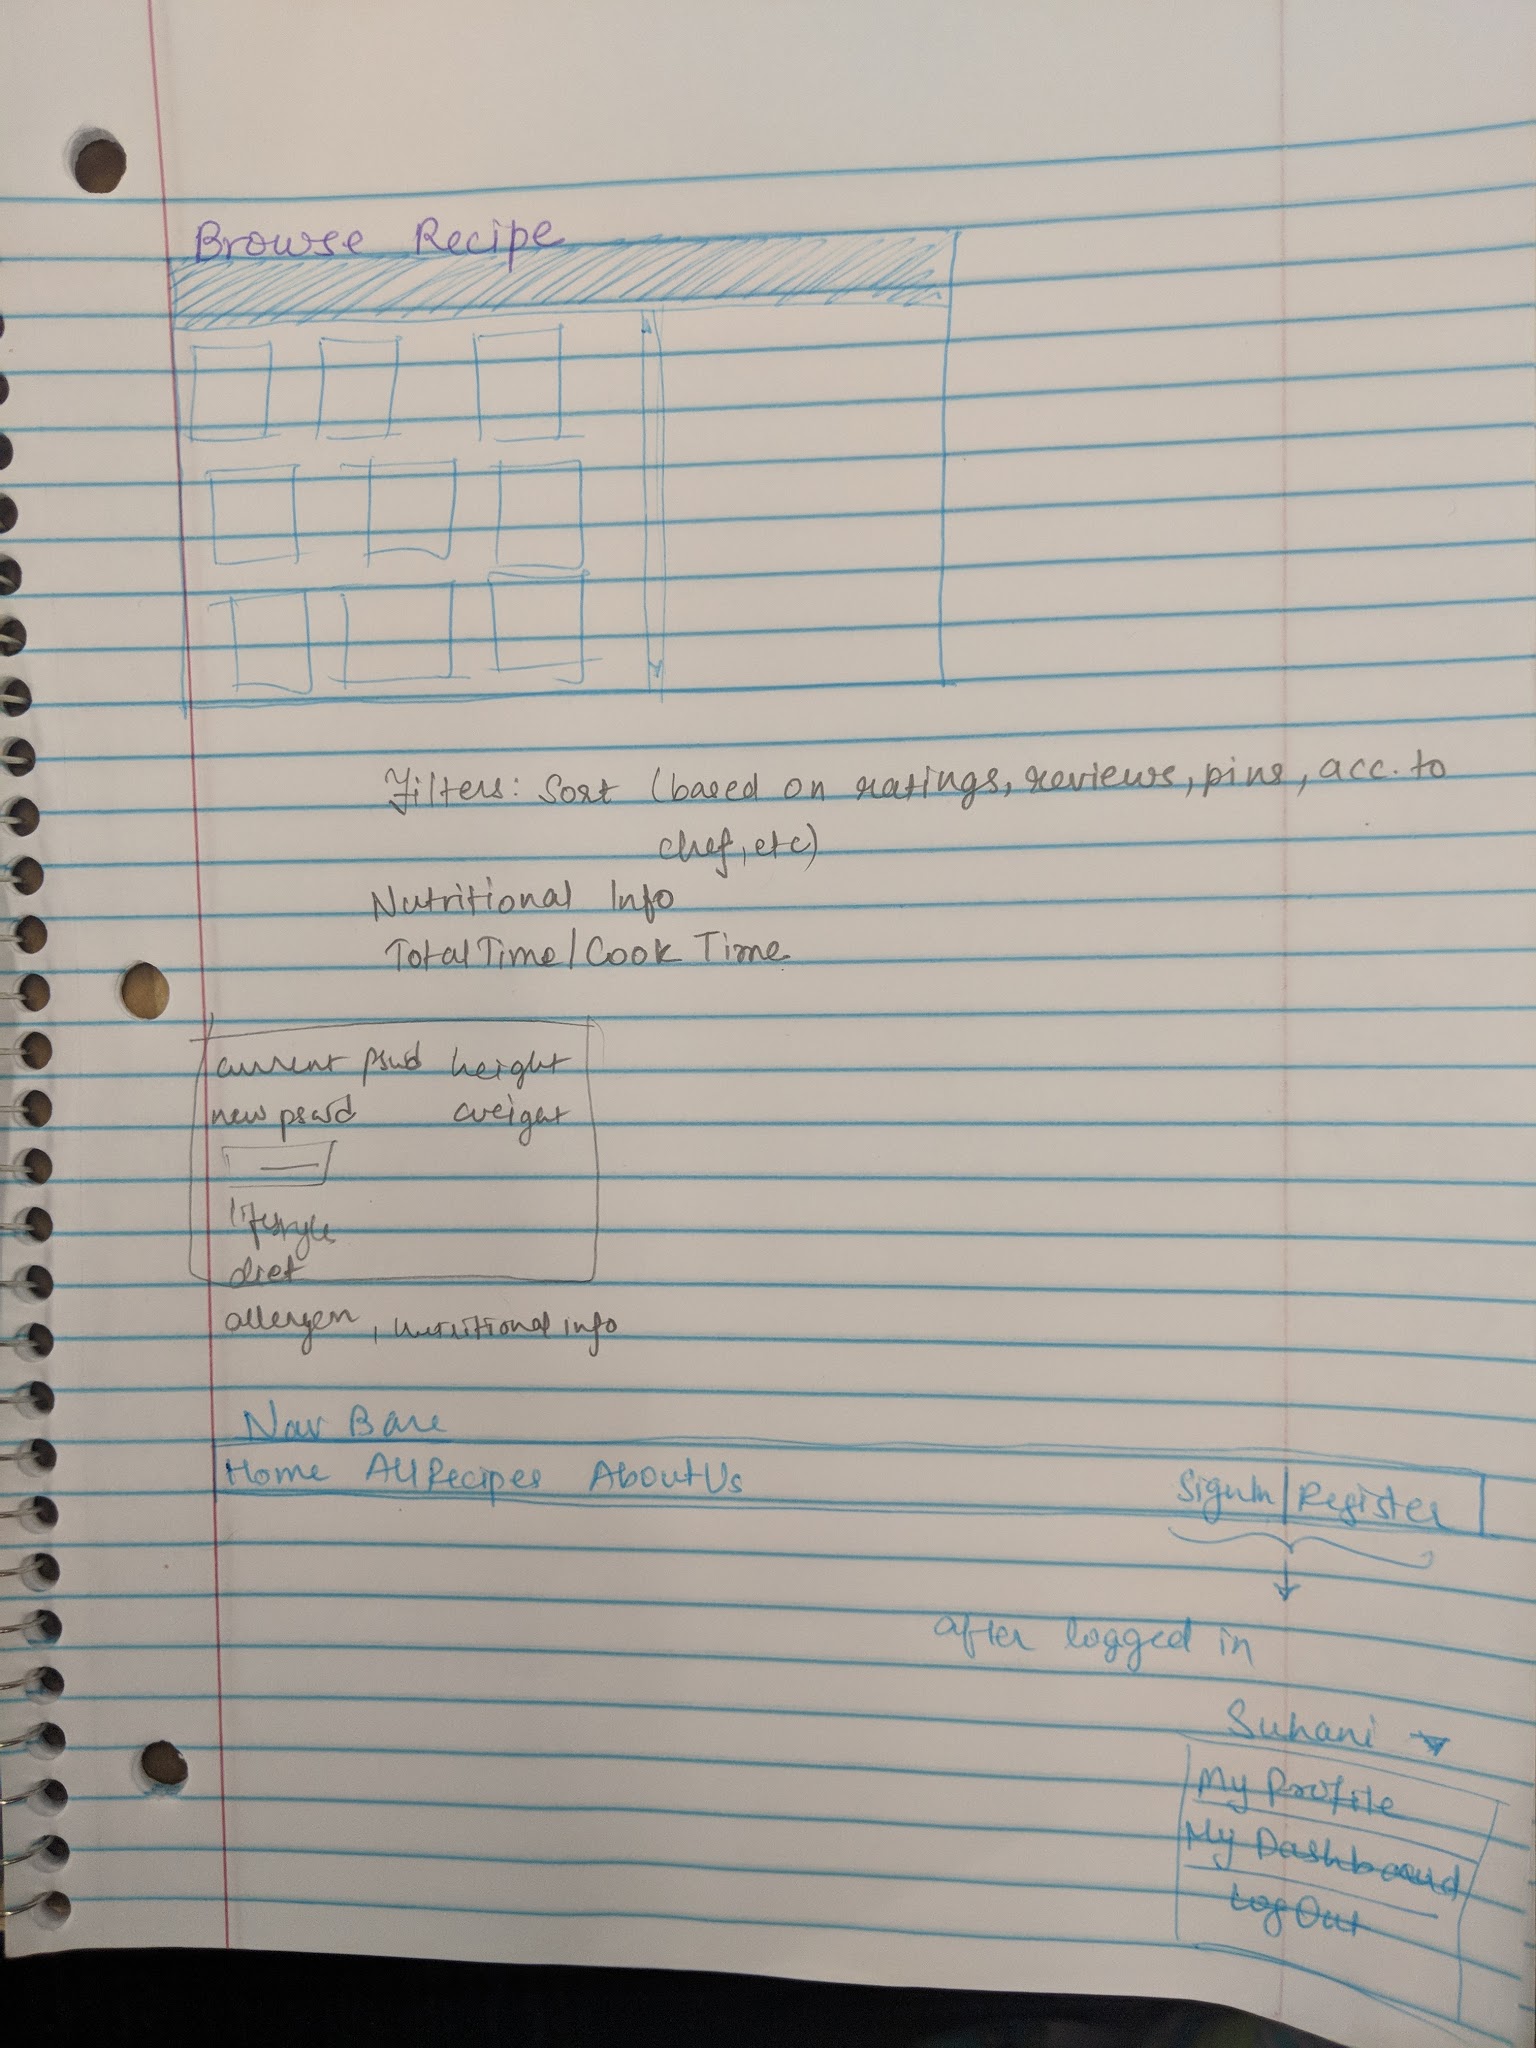 Browse Recipe
Filters: Sort (based on ratings, reviews, pins, acc. to
chef, etc)
Nutritional Info
Total Time/Cook Time
current pswd height
new pswd weight
lifestyle
diet
allergen, nutritional info
Nav Bar
Home All Recipes About Us SignIn/Register
after logged in
Suhani
My Profile
My Dashboard
Log Out